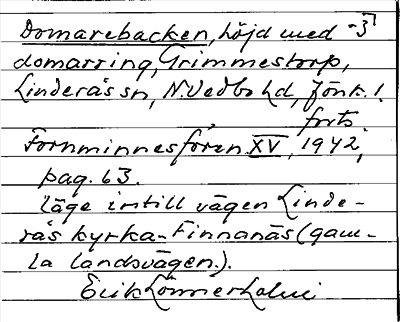 Domarebacken, höjd med -3
domarring, Grimmestorp,
Linderås sn, N. Vedbo hd, Jönk. l.
forts.
Fornminnesfören XV, 1942,
pag. 63.
läge intill vägen Linde-
rås kyrka-Finnanäs (gam-
la landsvägen.).
Erik Lönnerholm